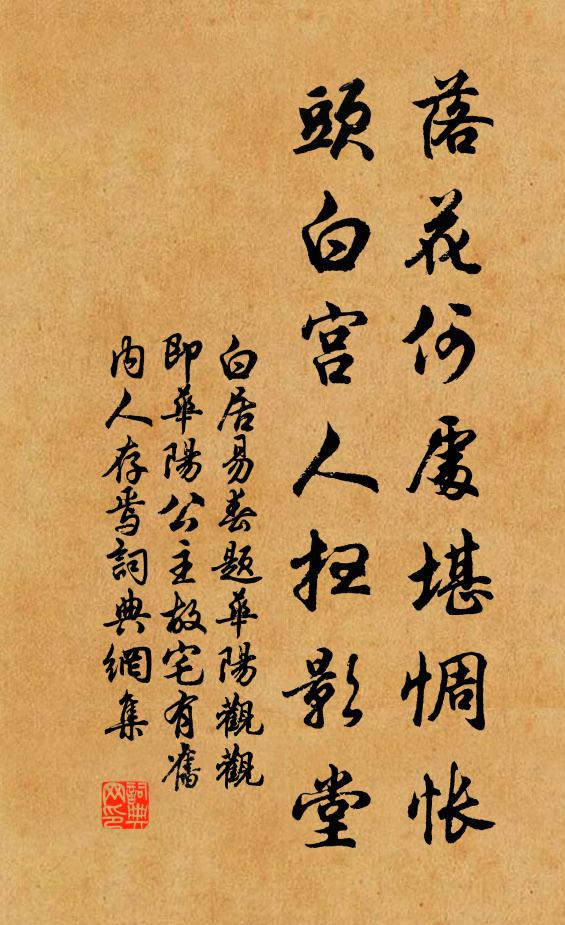 落花何處堪惆悵
頭白宮人扫影堂
白居易春題華陽觀觀
即華陽公主故宅有舊
内人存焉詞典網集
詞典
网印